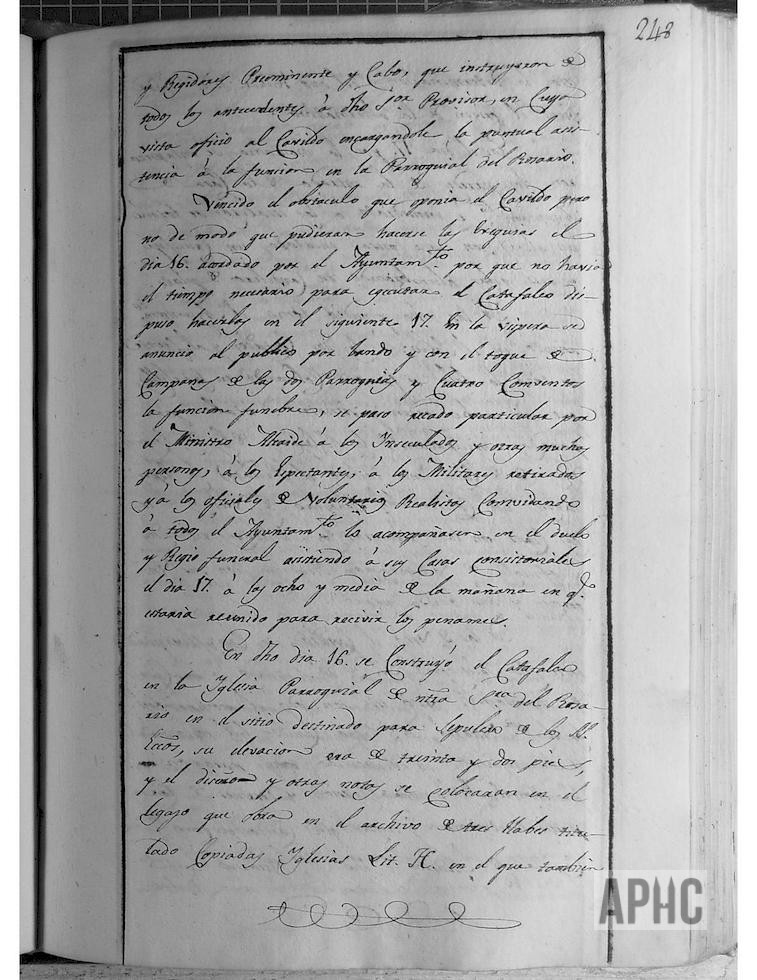 248
y Regidores Preeminente y Cabo, que instruyeron de
todos los antecedentes à dho S.or Provisor, en Cuya
vista oficio al Cavildo encargandole la puntual asis-
tencia à la funcion en la Parroquial del Rosario.
Vencido el obstaculo que oponia el Cavildo pero
no de modo que pudieran hacerse las Exequias el
dia 16. acordado por el Ayuntam.to por que no havia
el tiempo necesario para egecutar el Catafalco dis-
puso hacerlas en el siguiente 17. En la vispera se
anuncio al publico por bando y con el toque de
Campanas de las dos Parroquias y Cuatro Combentos
la funcion funebre, se paso recado particular por
el Ministro Alcaide à los Inseculados y otras muchas
personas, à los Espectantes, à los Militares retirados
y à los oficiales de Voluntarios Realistas Convidando
à todos el Ayuntam.to lo acompañasen en el duelo
y Regio funeral asistiendo à sus Casas consistoriales
el dia 17. à las ocho y media de la mañana en q.e
estaria reunido para recivir los pesames.
En dho dia 16. se Construyó el Catafalco
en la Yglesia Parroquial de ntra S.ra del Rosa-
rio en el sitio destinado para Sepulcro de los
Eccos, su elevacion era de treinta y dos pies,
y el diseño y otras notas se colocaran en el
legajo que obra en el archivo de tres llabes titu-
lado Copiadas Yglesias Lit. H. en el que tambien
APHC